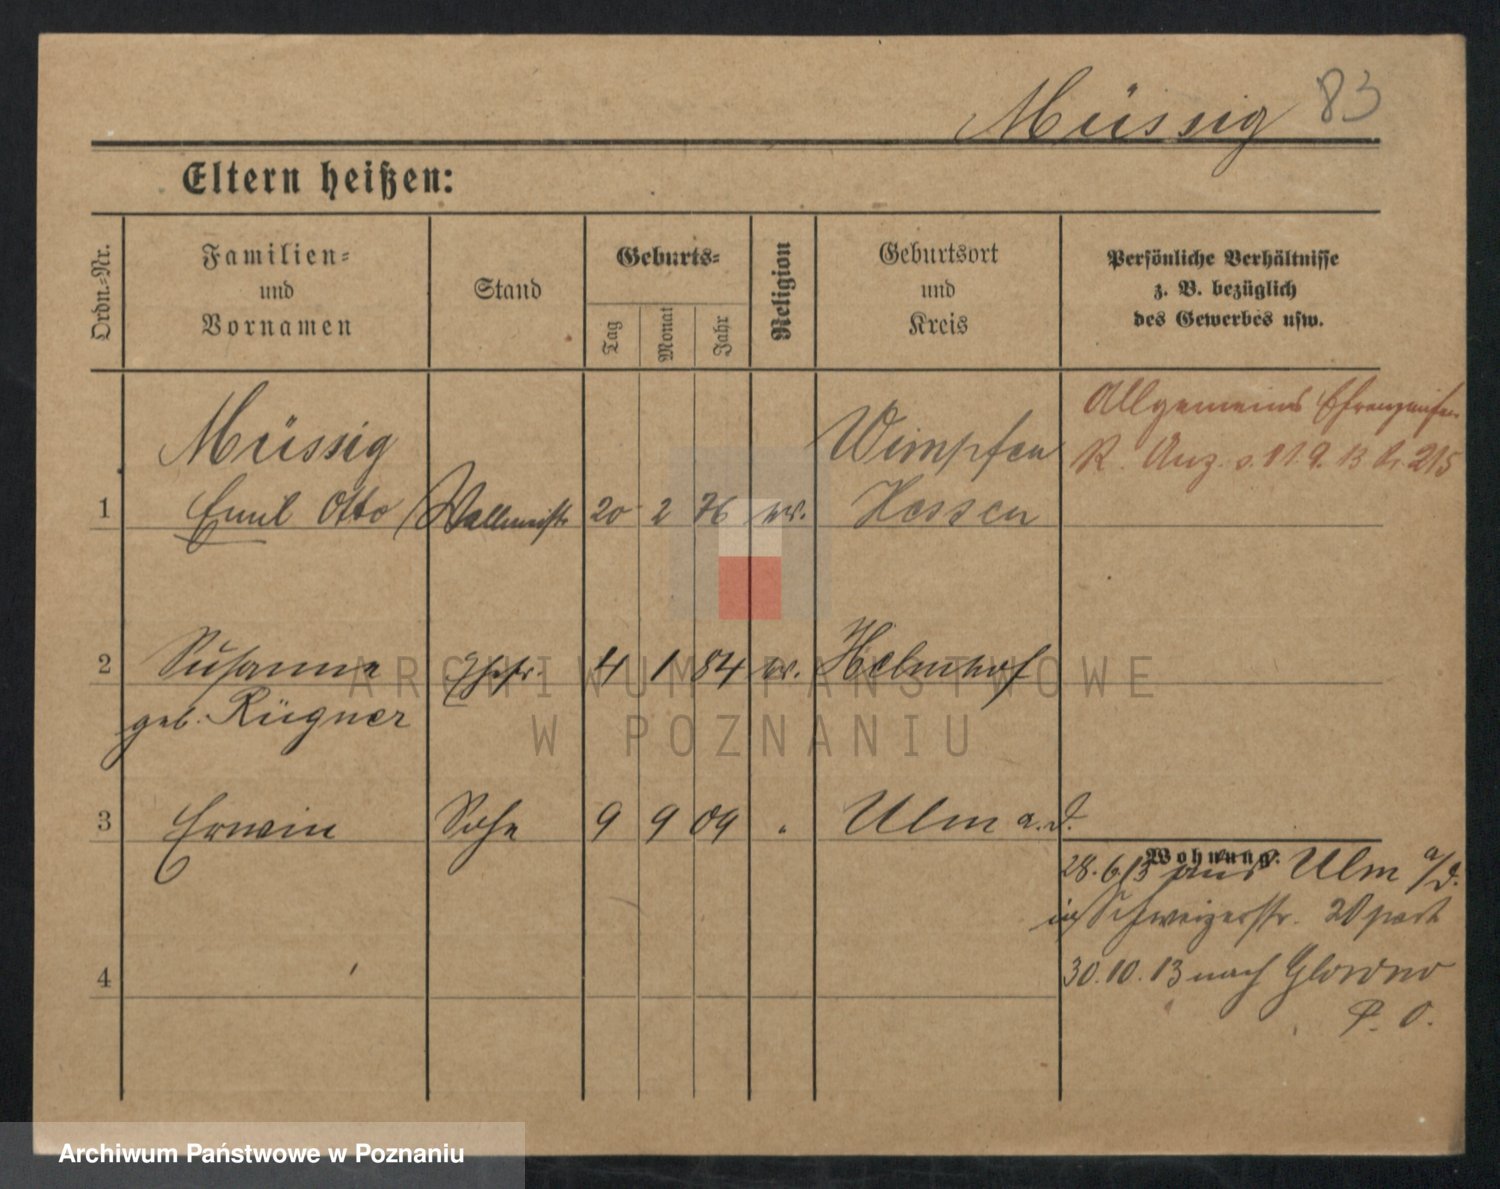 Müssig 83
Eltern heißen:
Ordn.-Nr.
Familien-
und
Vornamen
Stand
Geburts-
Tag
Monat
Jahr
Religion
Geburtsort
und
Kreis
Persönliche Verhältnisse
z. B. bezüglich
des Gewerbes usw.
Müssig
1 Emil Otto Wallmstr. 20 2 76 ev. Wimpfen
Hessen
Allgemeines Ehrenzeichen
R. Anz. v. 11.9.13 Nr. 215
2 Susanna Ehefr. 4 1 84 ev. Helmhof
geb. Rügner
3 Erwin Sohn 9 9 09 " Ulm a. D.
4
Wohnung.
28.6.13 aus Ulm a/D.
in Schweizerstr. 20 part
30.10.13 nach Glowno
P. O.
ARCHIWUM PAŃSTWOWE
W POZNANIU
Archiwum Państwowe w Poznaniu